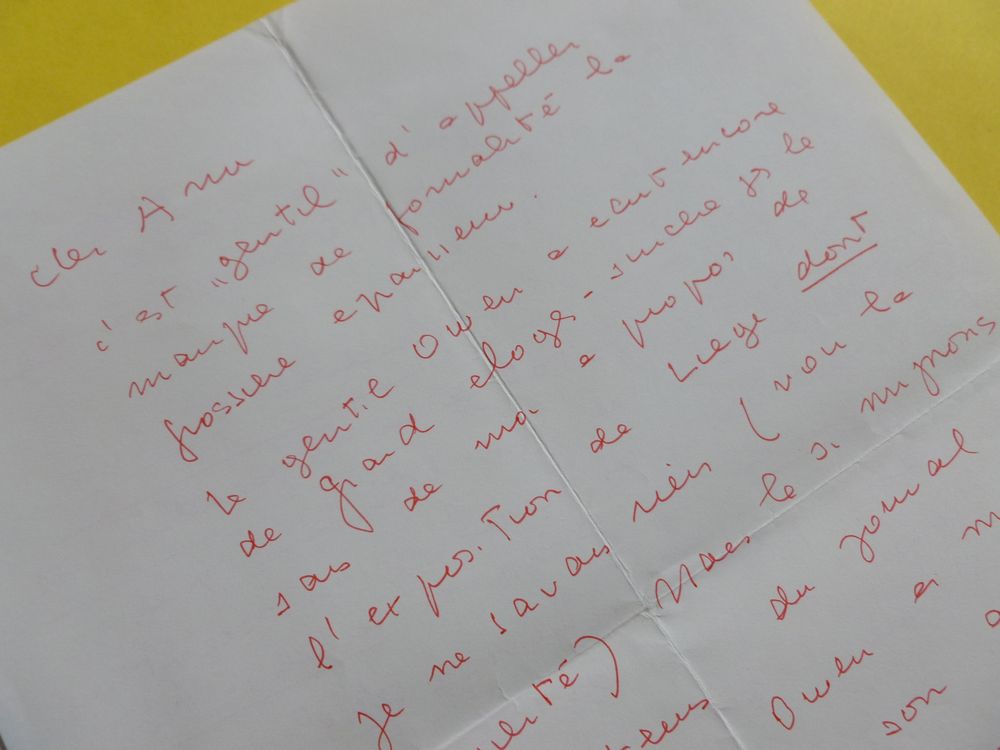 cher Ami
c'est "gentil" d'appeller
manque de formalité la
le gentil Owen a ecrit encore
de grand eloge - sincere je le
sais de moi a propos de
l'exposition de Liege dont
je ne savais rien (voir la
alité) Mais le si mignons
du journal
Owen a m
son